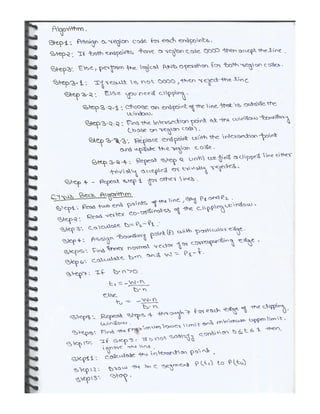 Algorithm.
Step 1: Assign a region code for each endpoints.
Step 2: If both endpoints have a region code 0000 then accept the line.
Step 3: Else, perform the logical AND operation for both region codes.
Step 3.1: If result is not 0000, then reject the line
Step 3.2: Else you need clipping.
Step 3.2.1: Choose an endpoint of the line that is outside the
window.
Step 3.2.2: Find the intersection point at the window boundary
(base on region code).
Step 3.2.3: Replace endpoint with the intersection point
and update the region code.
Step 3.2.4: Repeat step 2 until we find a clipped line either
trivially accepted or trivially rejected.
Step 4 - Repeat step 1 for other lines.
Cyrus Beck Algorithm
Step 1: Read two end points of the line, say P1 and P2.
Step 2: Read vertex co-ordinates of the clipping window.
Step 3: Calculate D = P2 - P1.
Step 4: Assign boundary point (f) with particular edge.
Step 5: Find inner normal vector for corresponding edge.
Step 6: Calculate D.n and W = P1 - f.
Step 7: If D.n > 0
t1 = -W.n
D.n
else
t2 = -W.n
D.n
Step 8: Repeat steps 4 through 7 for each edge of the clipping
window
Step 9: Find the maximum lower limit and minimum upper limit.
Step 10: If do not satisfy condition 0 ≤ t ≤ 1 then
ignore the line.
Step 11: Calculate the intersection point.
Step 12: Draw the line segment P(t1) to P(t2)
Step 13: Stop.